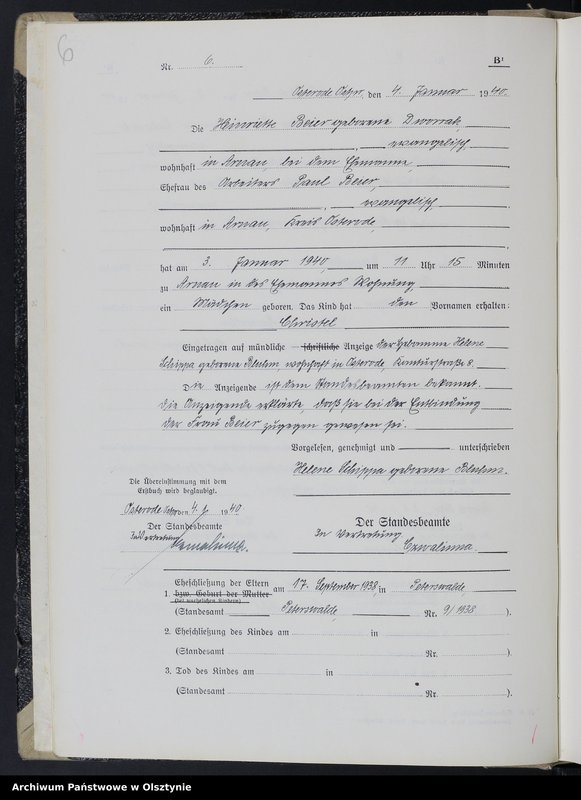 6
Nr. 6. B¹
Osterode Ostpr., den 4. Januar 1940.
Die Henriette Beier geborene Dworrak,
evangelisch,
wohnhaft in Arnau, bei dem Ehemanne,
Ehefrau des Arbeiters Paul Beier,
, evangelisch,
wohnhaft in Arnau, Kreis Osterode,
,
hat am 3. Januar 1940, um 11 Uhr 15 Minuten
zu Arnau in des Ehemannes Wohnung,
ein Mädchen geboren. Das Kind hat den Vornamen erhalten:
Christel
Eingetragen auf mündliche – schriftliche – Anzeige der Hebamme Helene
Schippa geborene wohnhaft in Osterode, 8.
Die Anzeigende ist dem Standesbeamten bekannt.
Die Anzeigende erklärte, daß sie bei der Entbindung
der Frau Beier zugegen gewesen sei.
Vorgelesen, genehmigt und unterschrieben
Helene Schippa geborene
Die Übereinstimmung mit dem
Erstbuch wird beglaubigt.
Osterode Ostpr. den 4. 1. 1940
Der Standesbeamte
In Vertretung
Der Standesbeamte
In Vertretung
Czwalinna.
1. Eheschließung der Eltern am 17. September 1938, in Peterswalde,
bzw. Geburt der Mutter
(bei unehelichen Kindern)
(Standesamt Peterswalde, Nr. 9/1938 ).
2. Eheschließung des Kindes am in
(Standesamt Nr. ).
3. Tod des Kindes am in
(Standesamt Nr. ).
Archiwum Państwowe w Olsztynie